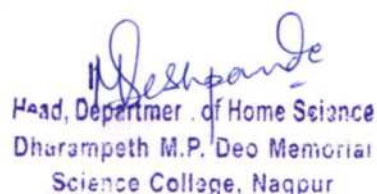 Deshpande
Head, Departmer . of Home Science
Dharampeth M.P. Deo Memorial
Science College, Nagpur